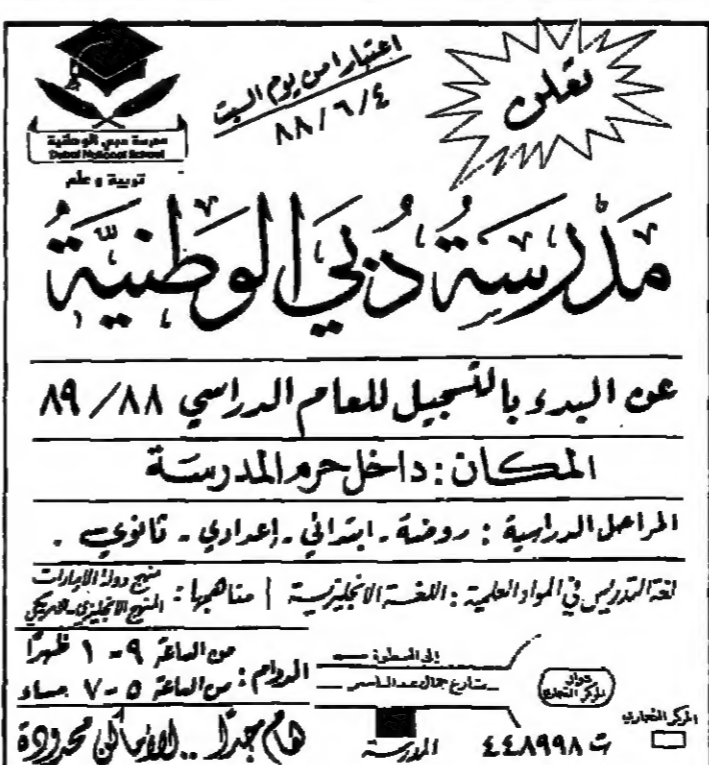 تعلن
اعتبارا من يوم السبت
٨٨/٦/٤
مدرسة دبي الوطنية
Dubai National School
تربية و علم
مَدْرَسَةُ دُبَي الوَطنيَّةُ
عن البدء بالتسجيل للعام الدراسي ٨٩/٨٨
المكان : داخل حرم المدرسة
المراحل الدراسية : روضة - ابتدائي - إعدادي - ثانوي .
لغة التدريس في المواد العلمية : اللغة الانجليزية | مناهجها : منهج دولة الإمارات
المنهج الانجليزي
الدوام : من الساعة ٩ - ١ ظهرًا
من الساعة ٥ - ٧ مساء
هام جدًا .. الأماكن محدودة
إلى السطوة
شارع جمال عبد الناصر
المدرسة
دوار المركز التجاري
المركز التجاري
ت ٤٤٨٩٩٨